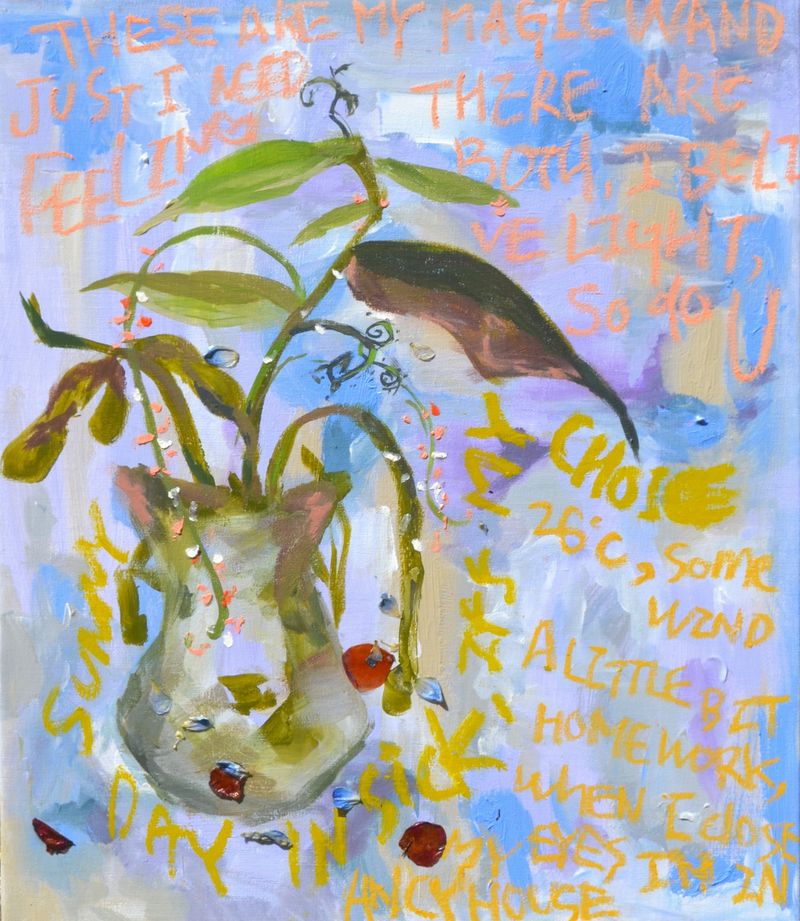 THESE ARE MY MAGIC WAND
JUST I NEED
FEELING
THERE ARE
BOTH, I BELI
VE LIGHT,
So do U
SUNNY
DAY IN SICK,
ITS MY
CHOICE
26°C, Some
WIND
A LITTLE BIT
HOMEWORK,
WHEN I CloSE
MY EYES IM IN
ANCY HOUSE